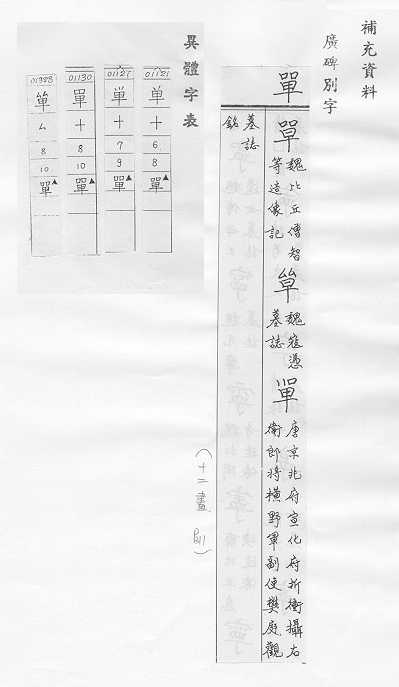 補充資料
廣碑別字
單
單 魏比丘傅智
等造像記
魏寇憑
墓誌
單 唐京兆府宣化府折衝攝右
衛郎將橫野軍副使樊庭觀
墓誌
銘
(十二畫)
異體字表
01121 01121 01130 01388
十 十 十 厶
6 7 8 8
8 9 10 10
單▲ 單▲ 單▲ 單▲